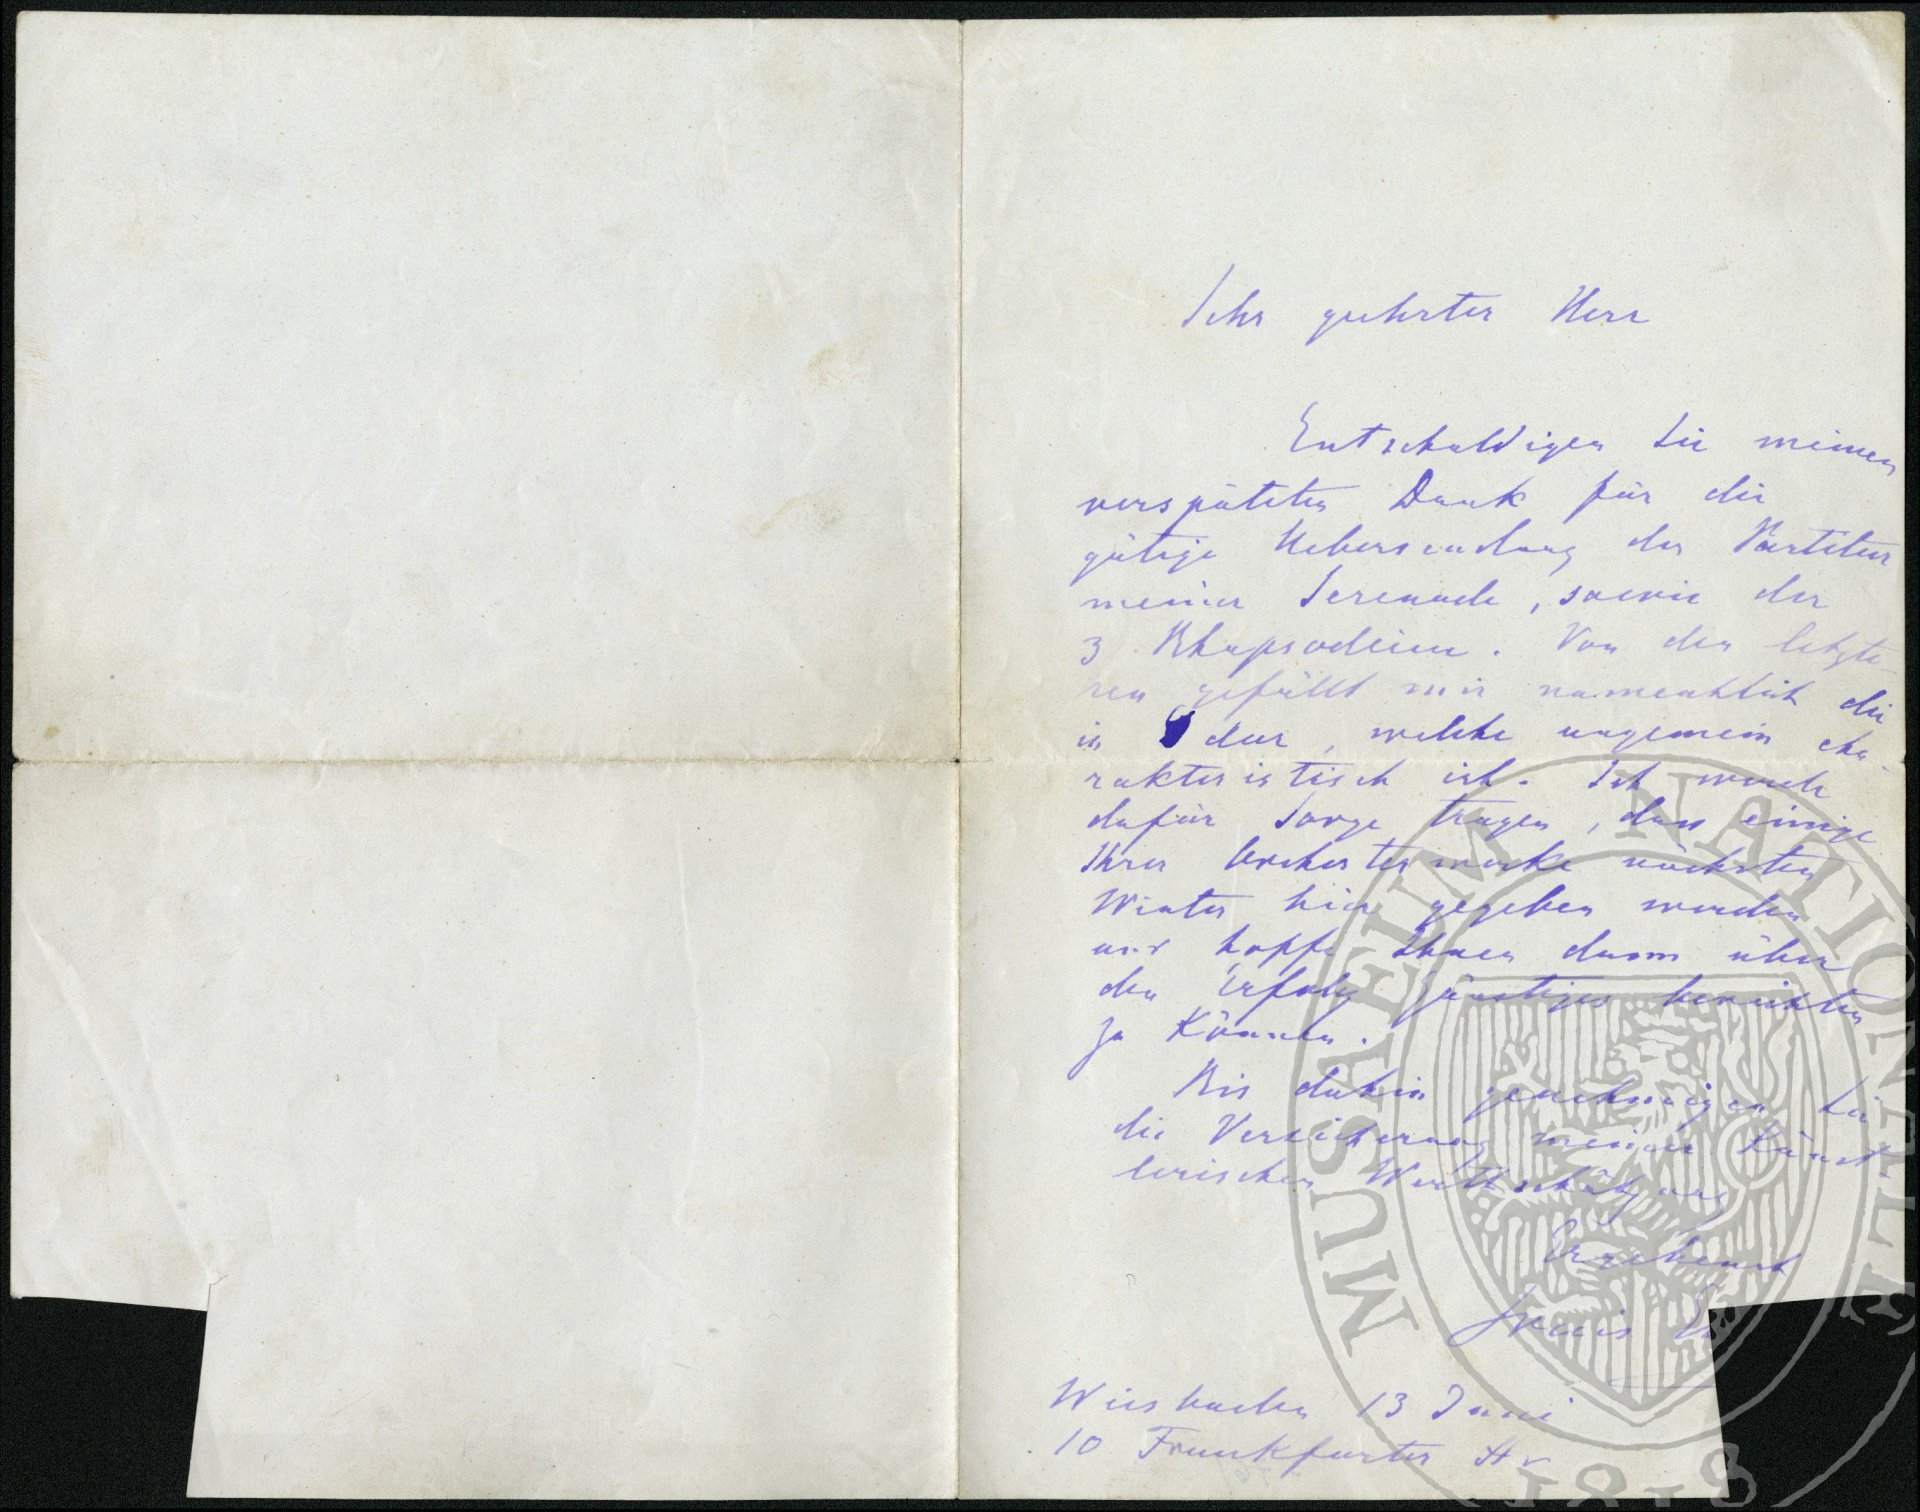 Sehr geehrter Herr
Entschuldigen Sie meinen
verspäteten Dank für die
gütige Uebersendung der Partitur
meiner Serenade, sowie der
3 Rhapsodieen. Von den letzte-
ren gefällt mir namentlich die
in dur, welche ungemein cha-
rakteristisch ist. Ich werde
dafür Sorge tragen, dass einige
Ihrer Orchesterwerke nächsten
Winter hier gegeben werden
und hoffe Ihnen dann über
den Erfolg günstiges berichten
zu können.
Bis dahin genehmigen Sie
die Versicherung meiner künst-
lerischen Werthschätzung
Ergebenst
Louis
Wiesbaden 13 Juni
10 Frankfurter Str
MUSAEUM NATIONALE
1818